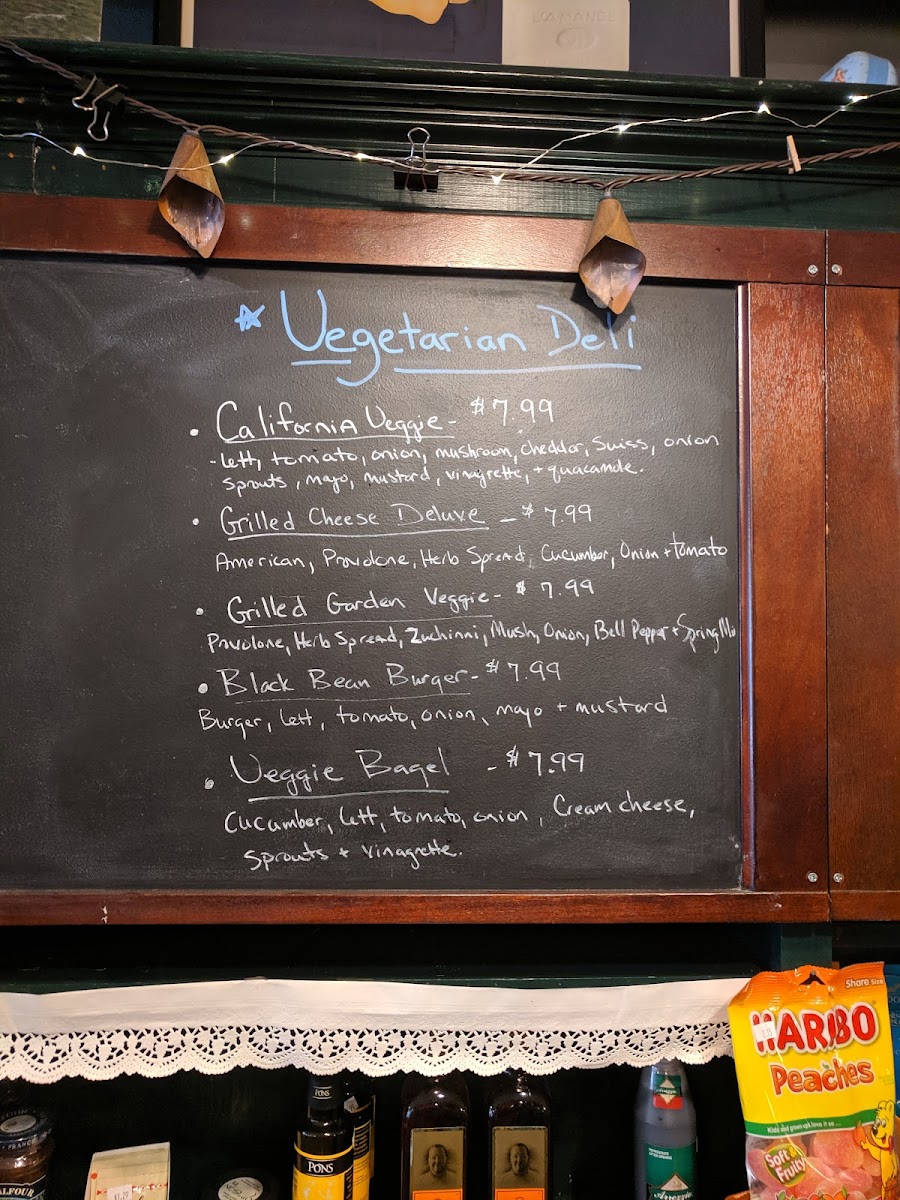 LOAMANDE
* Vegetarian Deli
• California Veggie - $7.99
- lett, tomato, onion, mushroom, cheddar, Swiss, onion
sprouts, mayo, mustard, vinagrette, + guacamole.
• Grilled Cheese Deluxe - $7.99
American, Provolone, Herb Spread, Cucumber, Onion + tomato
• Grilled Garden Veggie - $7.99
Provolone, Herb Spread, Zuchinni, Mush, Onion, Bell Pepper + Spring Mix
• Black Bean Burger - $7.99
Burger, lett, tomato, onion, mayo + mustard
• Veggie Bagel - $7.99
Cucumber, lett, tomato, onion, Cream cheese,
Sprouts + Vinagrette.
Share Size
HARIBO
Peaches
Kids and grown-ups love it so...
Soft &
Fruity
PONS
PONS